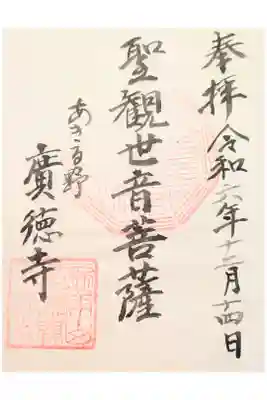 奉拝 令和六年十二月十四日
聖観世音菩薩
あきる野
廣徳寺